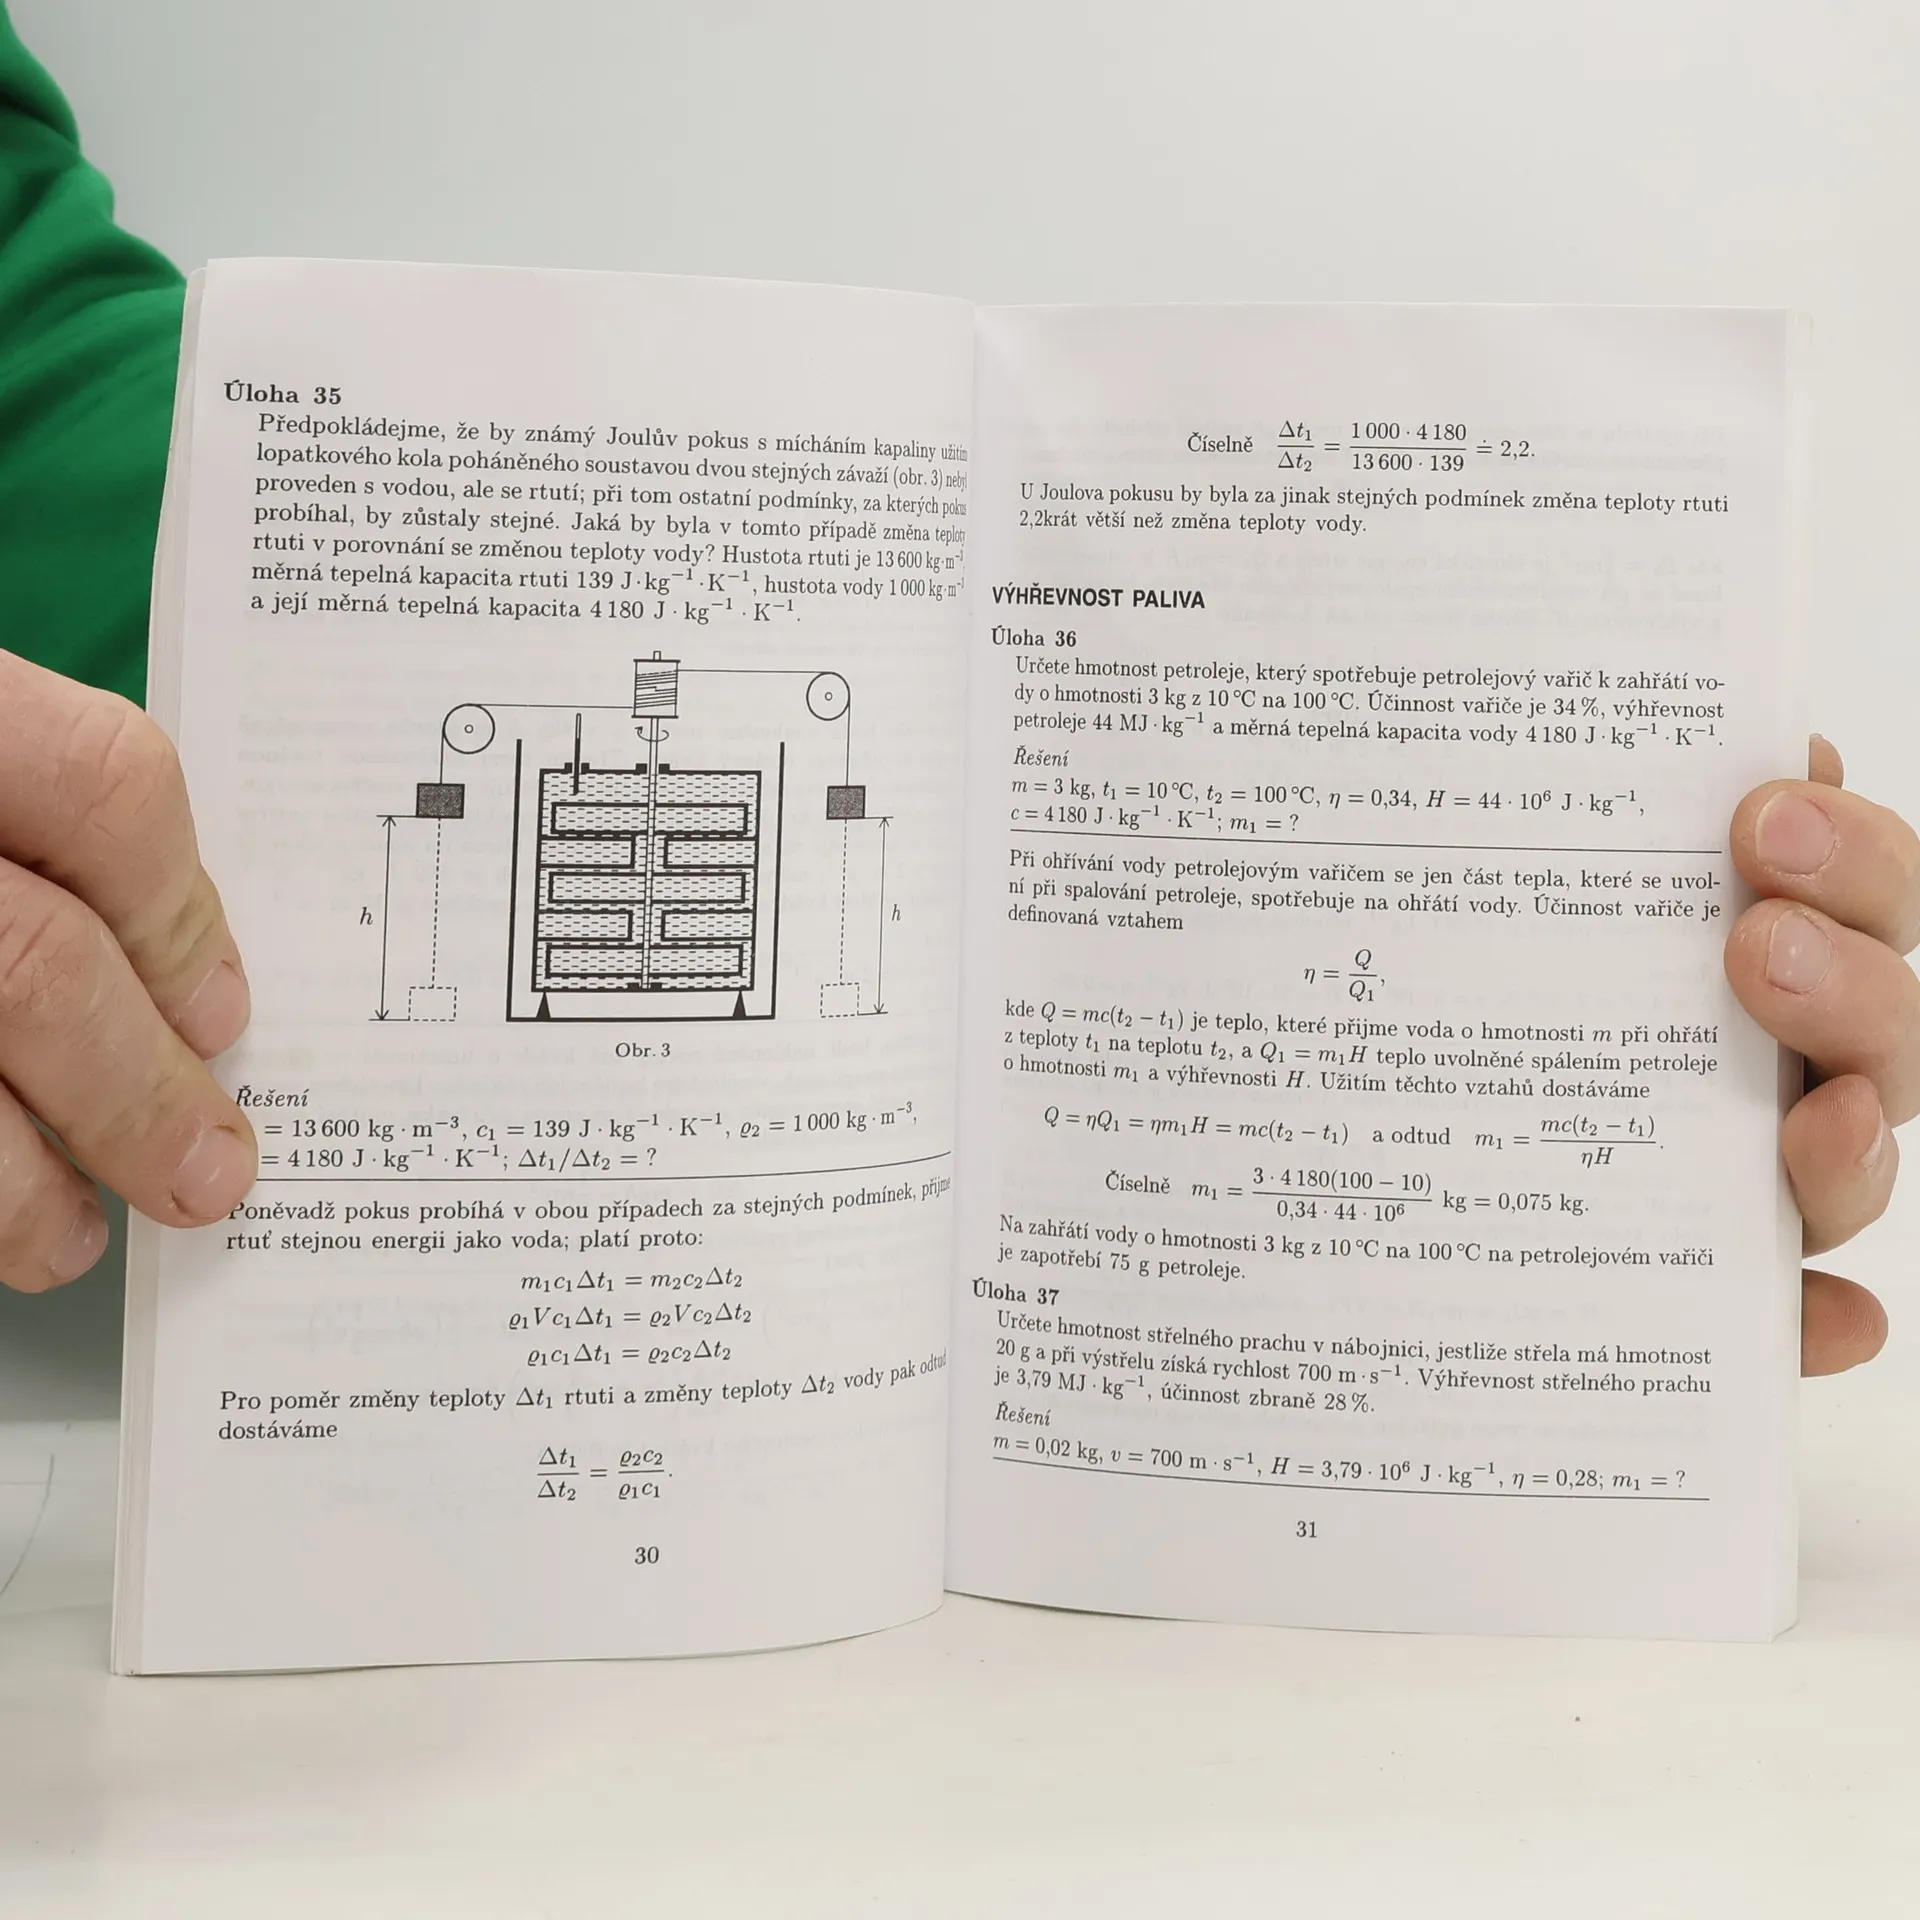 Úloha 35
Předpokládejme, že by známý Joulův pokus s mícháním kapaliny užitím
lopatkového kola poháněného soustavou dvou stejných závaží (obr. 3) nebyl
proveden s vodou, ale se rtutí; při tom ostatní podmínky, za kterých pokus
probíhal, by zůstaly stejné. Jaká by byla v tomto případě změna teploty
rtuti v porovnání se změnou teploty vody? Hustota rtuti je 13 600 kg·m⁻³,
měrná tepelná kapacita rtuti 139 J · kg⁻¹ · K⁻¹, hustota vody 1 000 kg·m⁻³
a její měrná tepelná kapacita 4 180 J · kg⁻¹ · K⁻¹.
h
h
Obr. 3
Řešení
= 13 600 kg · m⁻³, c₁ = 139 J · kg⁻¹ · K⁻¹, ϱ₂ = 1 000 kg · m⁻³,
= 4 180 J · kg⁻¹ · K⁻¹; Δt₁/Δt₂ = ?
Poněvadž pokus probíhá v obou případech za stejných podmínek, přijme
rtuť stejnou energii jako voda; platí proto:
m₁c₁Δt₁ = m₂c₂Δt₂
ϱ₁Vc₁Δt₁ = ϱ₂Vc₂Δt₂
ϱ₁c₁Δt₁ = ϱ₂c₂Δt₂
Pro poměr změny teploty Δt₁ rtuti a změny teploty Δt₂ vody pak odtud
dostáváme
Δt₁/Δt₂ = ϱ₂c₂/ϱ₁c₁.
30
Číselně Δt₁/Δt₂ = 1 000 · 4 180/13 600 · 139 ≐ 2,2.
U Joulova pokusu by byla za jinak stejných podmínek změna teploty rtuti
2,2krát větší než změna teploty vody.
VÝHŘEVNOST PALIVA
Úloha 36
Určete hmotnost petroleje, který spotřebuje petrolejový vařič k zahřátí vo-
dy o hmotnosti 3 kg z 10 °C na 100 °C. Účinnost vařiče je 34 %, výhřevnost
petroleje 44 MJ · kg⁻¹ a měrná tepelná kapacita vody 4 180 J · kg⁻¹ · K⁻¹.
Řešení
m = 3 kg, t₁ = 10 °C, t₂ = 100 °C, η = 0,34, H = 44 · 10⁶ J · kg⁻¹,
c = 4 180 J · kg⁻¹ · K⁻¹; m₁ = ?
Při ohřívání vody petrolejovým vařičem se jen část tepla, které se uvol-
ní při spalování petroleje, spotřebuje na ohřátí vody. Účinnost vařiče je
definovaná vztahem
η = Q/Q₁,
kde Q = mc(t₂ − t₁) je teplo, které přijme voda o hmotnosti m při ohřátí
z teploty t₁ na teplotu t₂, a Q₁ = m₁H teplo uvolněné spálením petroleje
o hmotnosti m₁ a výhřevnosti H. Užitím těchto vztahů dostáváme
Q = ηQ₁ = ηm₁H = mc(t₂ − t₁) a odtud m₁ = mc(t₂ − t₁)/ηH.
Číselně m₁ = 3 · 4 180(100 − 10)/0,34 · 44 · 10⁶ kg = 0,075 kg.
Na zahřátí vody o hmotnosti 3 kg z 10 °C na 100 °C na petrolejovém vařiči
je zapotřebí 75 g petroleje.
Úloha 37
Určete hmotnost střelného prachu v nábojnici, jestliže střela má hmotnost
20 g a při výstřelu získá rychlost 700 m · s⁻¹. Výhřevnost střelného prachu
je 3,79 MJ · kg⁻¹, účinnost zbraně 28 %.
Řešení
m = 0,02 kg, v = 700 m · s⁻¹, H = 3,79 · 10⁶ J · kg⁻¹, η = 0,28; m₁ = ?
31